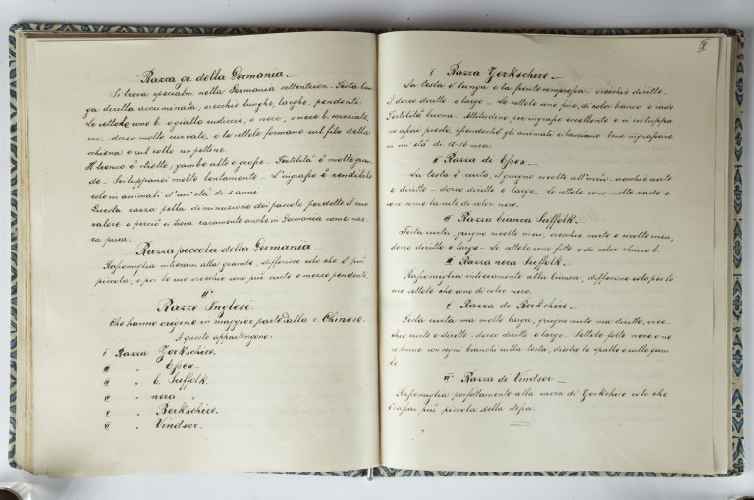 Razza gr. della Germania.
Si trova specialm. nella Germania settentrion. Testa lun-
ga diretta accuminata, orecchie lunghe, larghe, pendenti.
Le setole sono b. o giallo sudiccie, o nere, o nere b. mescolate,
dorso molto curvato, e le setole formano sul filo della
schiena e sul collo un pettine.
Il tronco è stretto, gambe alte e grosse. Fertilità è molto gran-
de. Sviluppansi molto lentamente. L'ingrasso è vendibile
solo in animali d'un' età di 2 anni.
Questa razza nella diminuzione dei pascoli perdette il suo
valore e perciò si trova raramente anche in Germania come raz-
za pura.
Razza piccola della Germania
Rassomiglia intieram. alla grande, differisce solo che è più
piccola, e per le sue orecchie uno più corte e mezzo pendenti.
II°
Razze Inglesi.
Che hanno origine in maggior parte dalla r. Chinese.
A queste appartengono:
I Razza Yorkschire.
II " Essex.
III " b. Suffolk.
IV " nera "
V " Berkschire.
VI " Vindsor.
I Razza Yorkschire.
La testa è lunga e la fronte orecchie diritte.
Il dorso diritto e largo. Le setole sono fine, di color bianco e rade
Fertilità buona. Attitudine per ingrasso eccellente e si sviluppa-
no assai presto, essendochè gli animali si lasciano bene ingrassare
in un' età di 12-16 mesi.
II Razza di Essex.
La testa è corta, il grugno rivolto all'insù. orecchie corte
e diritte. dorso diritto e largo. Le setole sono molto rade e
sono come la cute di color nero.
III Razza bianca Suffolk.
Testa corta, grugno rivolto insù, orecchie corte e rivolte insù,
dorso diritto e largo. Le setole sono fitte e di color bianco b.
IV Razza nera Suffolk.
Rassomiglia intieramente alla bianca, differisce solo per le
sue setole che sono di color nero.
V Razza di Berkschire.
Testa corta ma molto larga, grugno corto ma diritto, orec-
chie corte e diritte. dorso diritto e largo. Setole folte nere o ros-
se brune con segni bianchi sulla testa, dietro le spalle e sulle gam-
be
VI Razza di Vindsor.
Rassomiglia perfettamente alla razza di Yorkschire solo che
è assai più piccola della stessa.